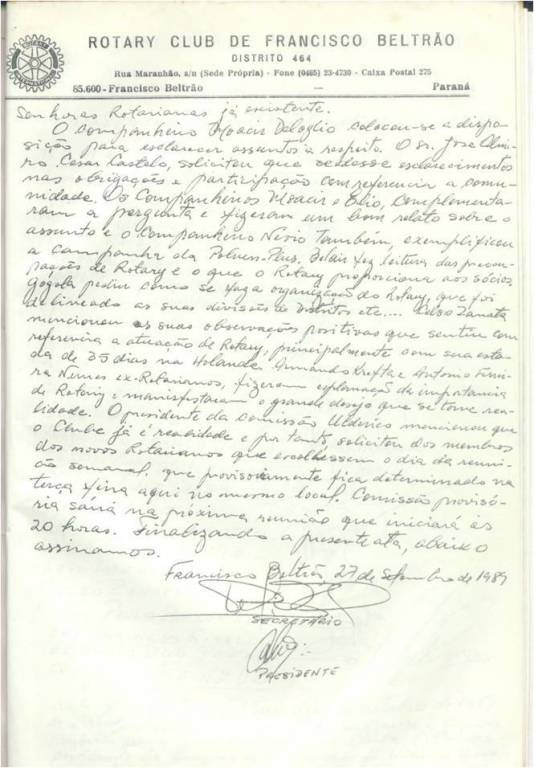 ROTARY CLUB DE FRANCISCO BELTRÃO
DISTRITO 464
Rua Maranhão, s/n (Sede Própria) - Fone (0465) 23-4730 - Caixa Postal 275
85.600 - Francisco Beltrão — Paraná
Senhoras Rotarianas já existente.
O Companheiro Moacir colocou-se a dispo-
sição para esclarecer assuntos a respeito. O sr. José
Cesar Castelo, solicitou que esclarecimentos
nas obrigações e participação com referencia a comu-
nidade. Os Companheiros Moacir e Elio, complementa-
ram a pergunta e fizeram um bom relato sobre o
assunto e o Companheiro Nesio Também, exemplificou
a campanha da fez leitura das preocu-
pações de Rotary e o que o Rotary proporciona aos sócios,
pediu como se faz a organização do Rotary, que foi
delineado as suas divisões de Distritos etc... Zanata
mencionou as suas observações positivas que sentiu com
referência a atuação de Rotary, principalmente com sua esta-
da de 35 dias na Holanda. Armando e Antonio Ferrei-
ra Nunes ex-Rotarianos, fizeram explanação da importancia
de Rotary e manifestaram o grande desejo que se torne rea-
lidade. O presidente da comissão Alderico mencionou que
o Clube já é realidade e por tanto, solicitou dos membros
dos novos Rotarianos que escolhessem o dia da reuni-
ão semanal, que provisoriamente fica determinado na
terça feira aqui no mesmo local. Comissão provisó-
ria sairá na próxima reunião que iniciará as
20 horas. Finalizando a presente ata, abaixo
assinamos.
Francisco Beltrão, 27 de Setembro de 1989
SECRETÁRIO
PRESIDENTE